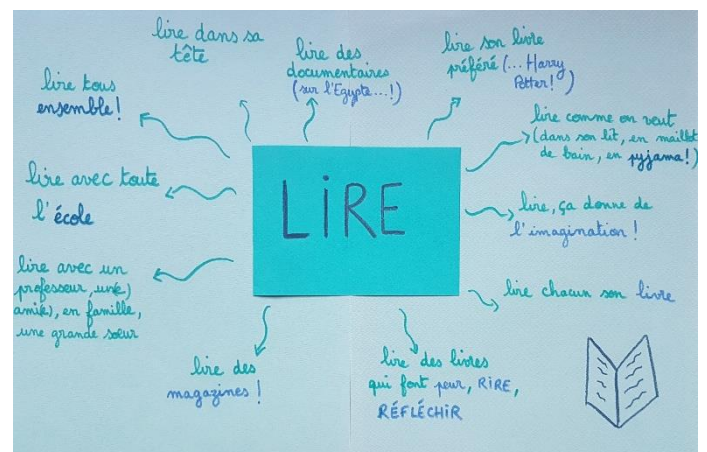 LIRE
lire dans sa
tête
lire des
documentaires
(sur l'Egypte...!)
lire son livre
préféré (... Harry
Potter!)
lire comme on veut
(dans son lit, en maillot
de bain, en pyjama!)
lire, ça donne de
l'imagination !
lire chacun son livre
lire des livres
qui font peur, RIRE,
RÉFLÉCHIR
lire des
magazines !
lire avec un
professeur, un(e)
ami(e), en famille,
une grande sœur
lire avec toute
l'école
lire tous
ensemble!